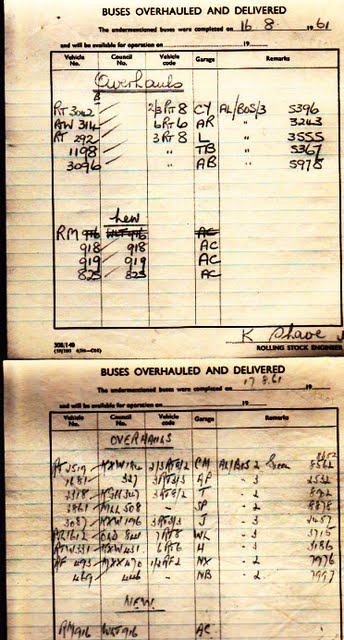 BUSES OVERHAULED AND DELIVERED
The undermentioned buses were completed on 16 . 8 . 1961
and will be available for operation on 19
Vehicle No. Council No. Vehicle code Garage Remarks
Overhauls
RT 3042 2/3 RT 8 CY AL/BOS/3 5396
RW 314 6 RT 6 AR " 3243
RT 292 3 RT 8 L " 3555
1198 " TB " 5367
3096 " AB " 5978
New
RM 916 WLT 916 AC
918 918 AC
919 919 AC
825 825 AC
K Shave
ROLLING STOCK ENGINEER
BUSES OVERHAULED AND DELIVERED
The undermentioned buses were completed on 17.8.61 19
and will be available for operation on 19
Vehicle No. Council No. Vehicle code Garage Remarks
OVERHAULS
CM AL/BOS 2 Green 8562
1281 327 AP 3 2532
2318 T 2
3861 MLL 508 SP 2 8878
3087 KXW 196 3 RT 3 J 3
WL 3 3715
KXW 431 6 RT 6 H 3 3186
RF 493 MXX 470 1/2 RF 2 NX 2 7976
469 446 NB 2
NEW
RM 916 WLT 916 AC